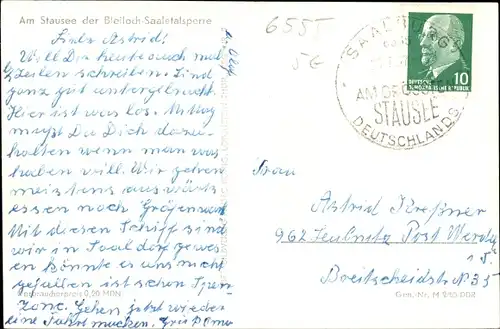 Am Stausee der Bleiloch-Saaletalsperre
Liebe Astrid!
Will Dir heute auch mal
Zeilen schreiben. Sind
ganz gut untergebracht.
Hier ist was los. Mittag
mußt Du Dich daran
halten wenn man was
haben will. Wir gehen
meistens auswärts
essen nach Gräfenwarth
Mit diesen Schiff sind
wir in Saaldorf gewes
en könnte es uns nicht
gefallen ist schon Sperr
Zone. Gehen jetzt wieder
eine Fahrt machen. Gruß Oma
Verbraucherpreis 0,20 MDN
6555
SAALBURG
AM GRÖSSTEN
STAUSEE
DEUTSCHLANDS
DEUTSCHE
DEMOKRATISCHE REPUBLIK
10
Frau
Astrid Kreßner
962 Leubnitz Post Werdau
i. S.
Breitscheidstr. 35
Gen.-Nr. M 255 DDR